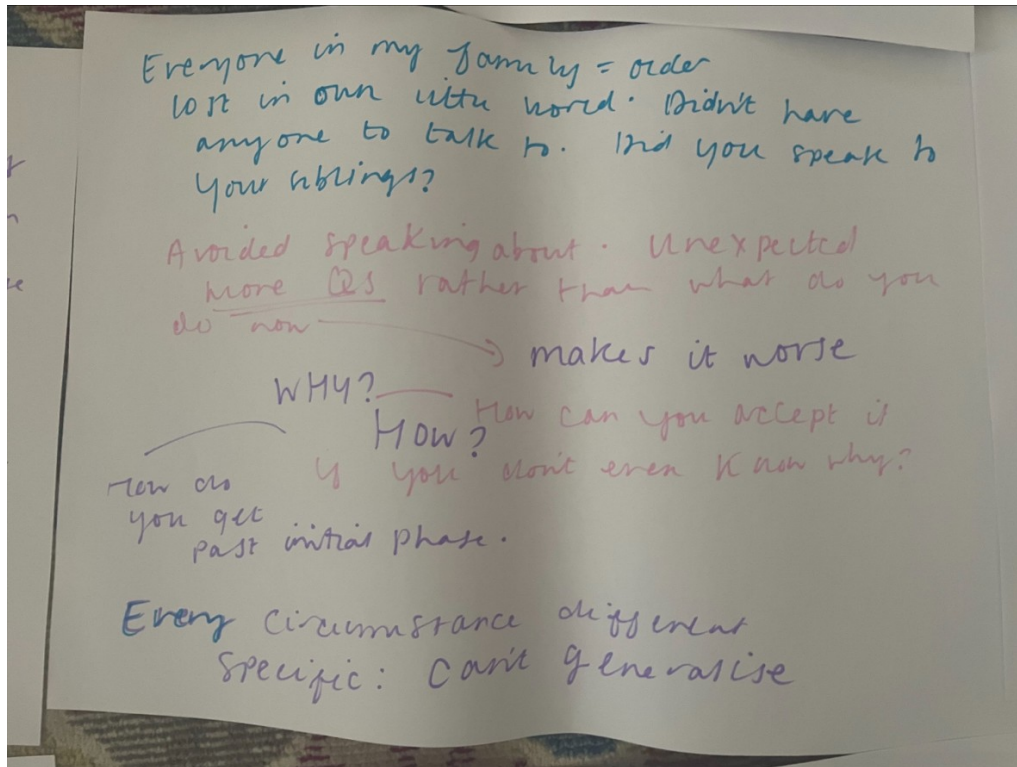 Everyone in my family = older
lost in own little world. Didn't have
anyone to talk to. Did you speak to
your siblings?
Avoided speaking about. Unexpected
more Qs rather than what do you
do now
makes it worse
WHY?
HOW?
How can you accept it
if you don't even know why?
How do
you get
past initial phase.
Every circumstance different
specific: Can't generalise